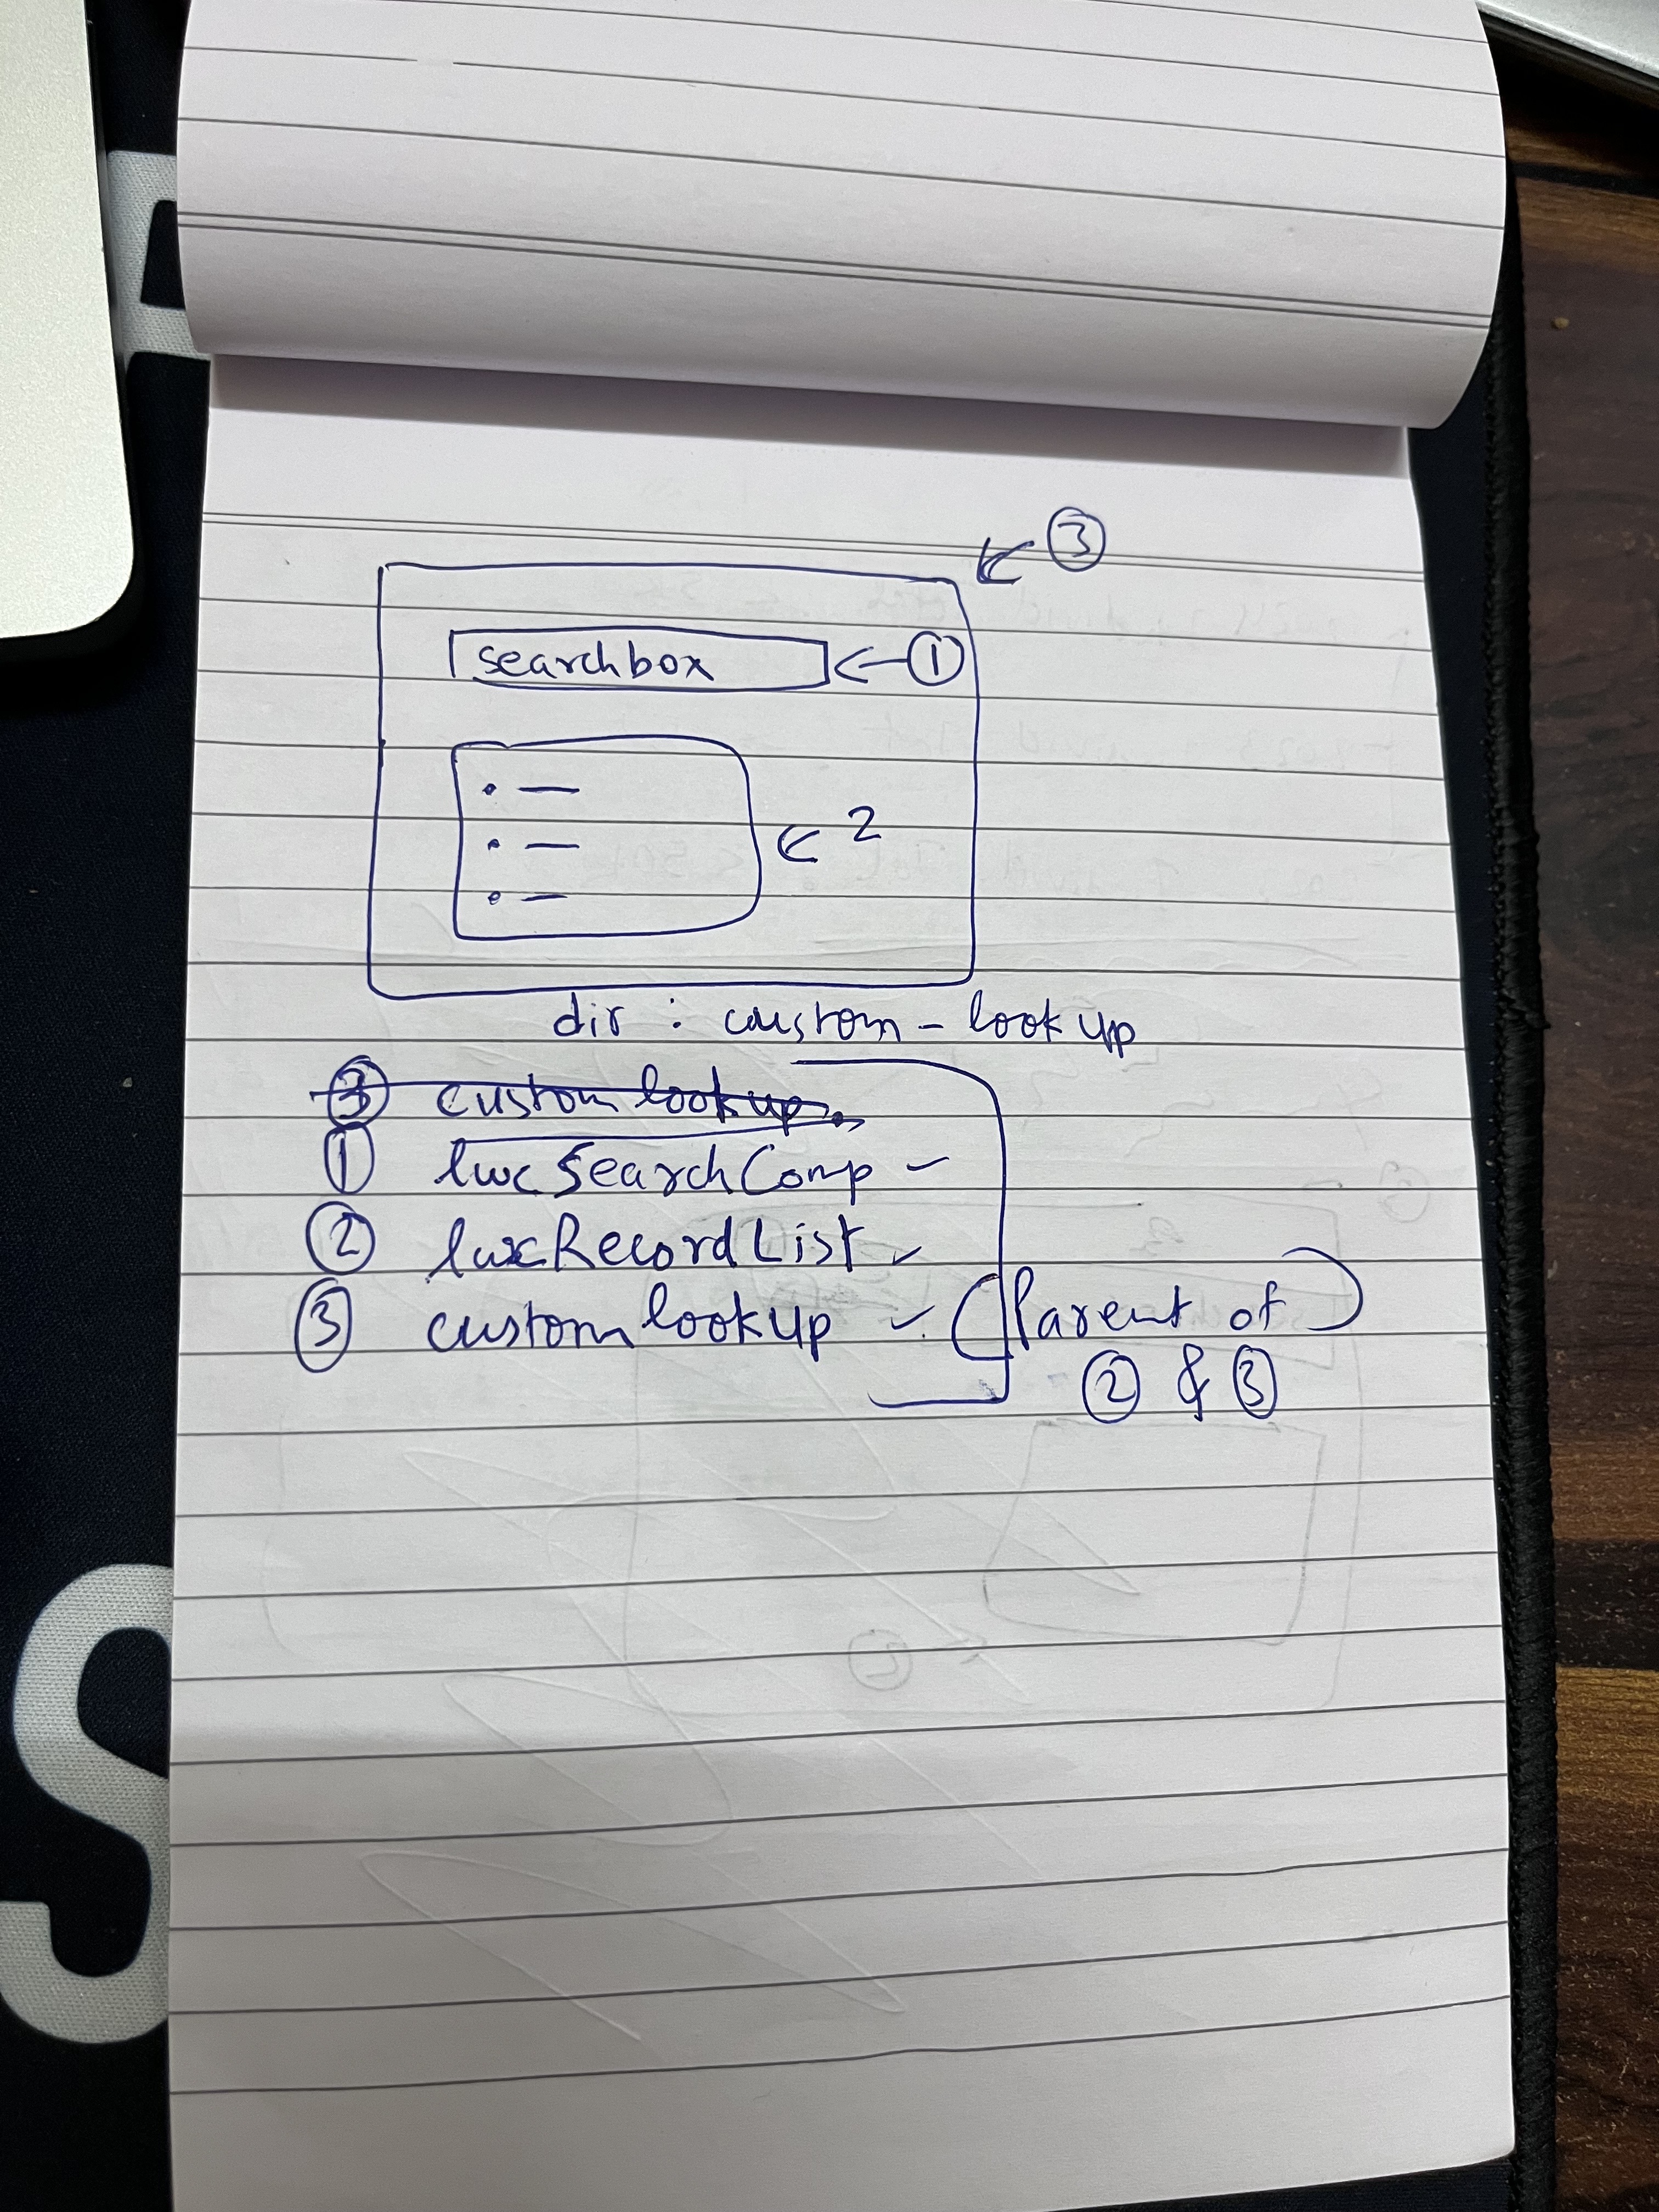 ③
searchbox ①
2
dir : custom - lookup
③ custom lookup
① lwcSearchComp
② lwcRecordList
③ customlookup (Parent of)
② & ③
S